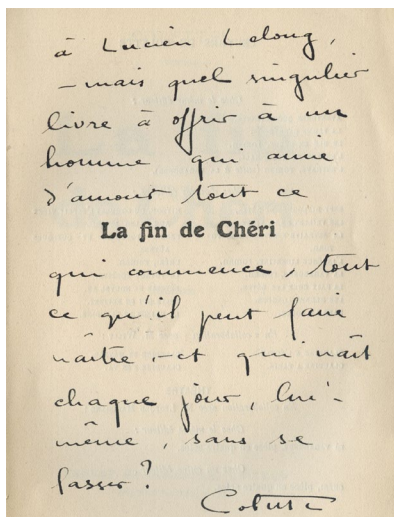 à Lucien Lelong,
– mais quel singulier
livre à offrir à un
homme qui aime
d'amour tout ce
La fin de Chéri
qui commence, tout
ce qu'il peut faire
naître – et qui naît
chaque jour, lui-
même, sans se
lasser?
Colette